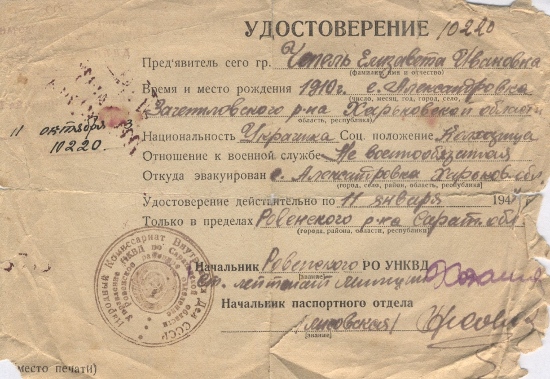 УДОСТОВЕРЕНИЕ 10220
Пред'явитель сего гр. Чепель Елизавета Ивановна
(фамилия, имя и отчество)
Время и место рождения 1910 г. с. Александровка
(число, месяц, год, город, село,
Зачепиловского р-на Харьковской области
область, республика)
11 октября
10220.
Национальность Украинка Соц. положение Колхозница
Отношение к военной службе Не военнообязанная
Откуда эвакуирован с. Александровка Харьков. обл.
(город, село, район, область, республика)
Удостоверение действительно по 11 января 194
Только в пределах Ровенского р-на Сарат. обл.
(города, района, области, республики)
Начальник Ровенского РО УНКВД
(звание)
лейтенант милиции
Начальник паспортного отдела
(звание)
Народный Комиссариат Внутр Дел СССР
(место печати)